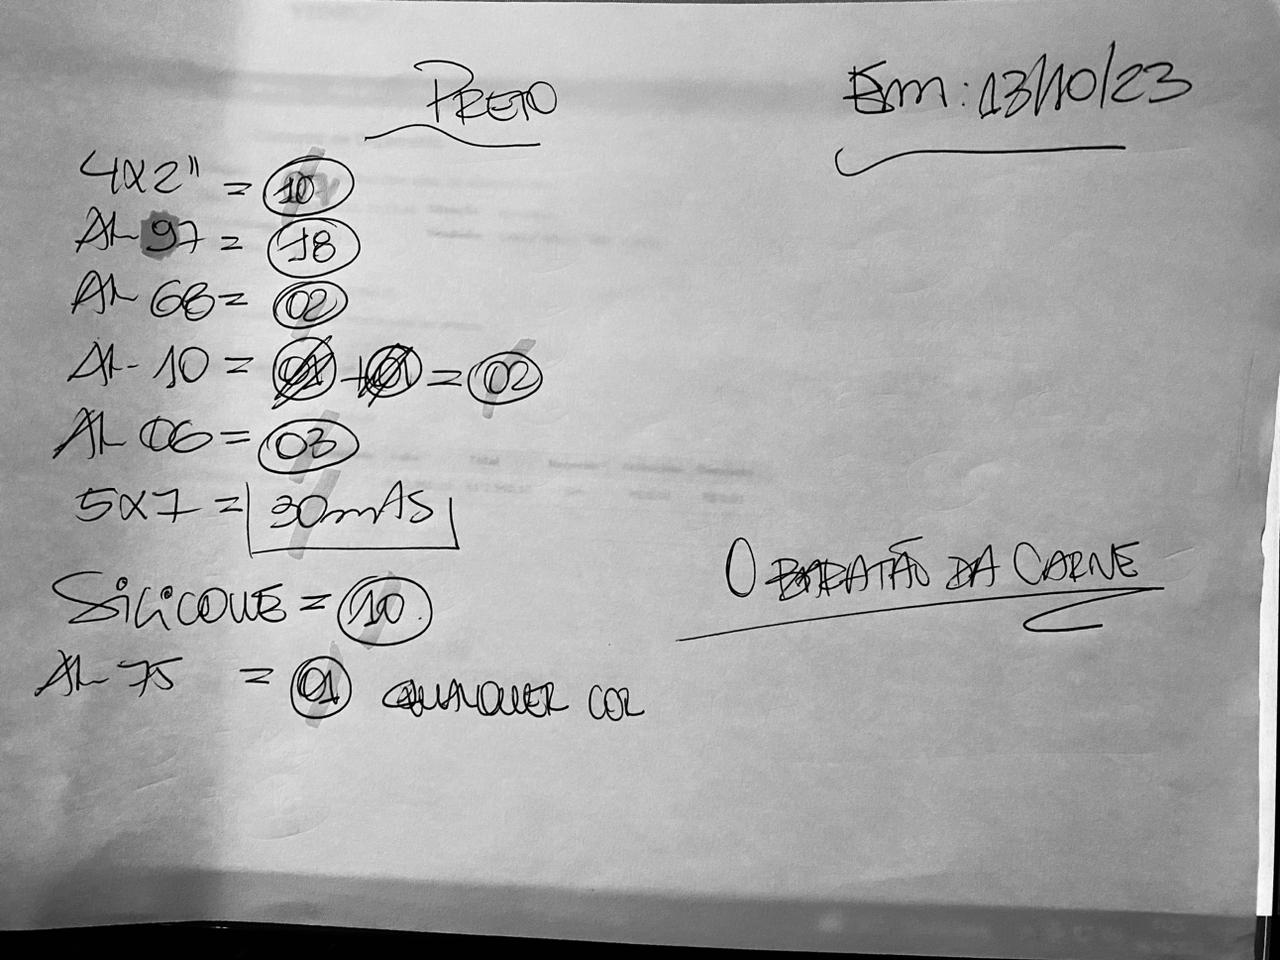 PRETO
Em: 13/10/23
4x2" = 10
AL 97 = 18
AL 68 = 02
AL- 10 = 01 + 01 = 02
AL 06 = 03
5x7 = 30mAS
O BARATÃO DA CARNE
SiLiCONE = 10.
AL 75 = 01 QUALQUER COR